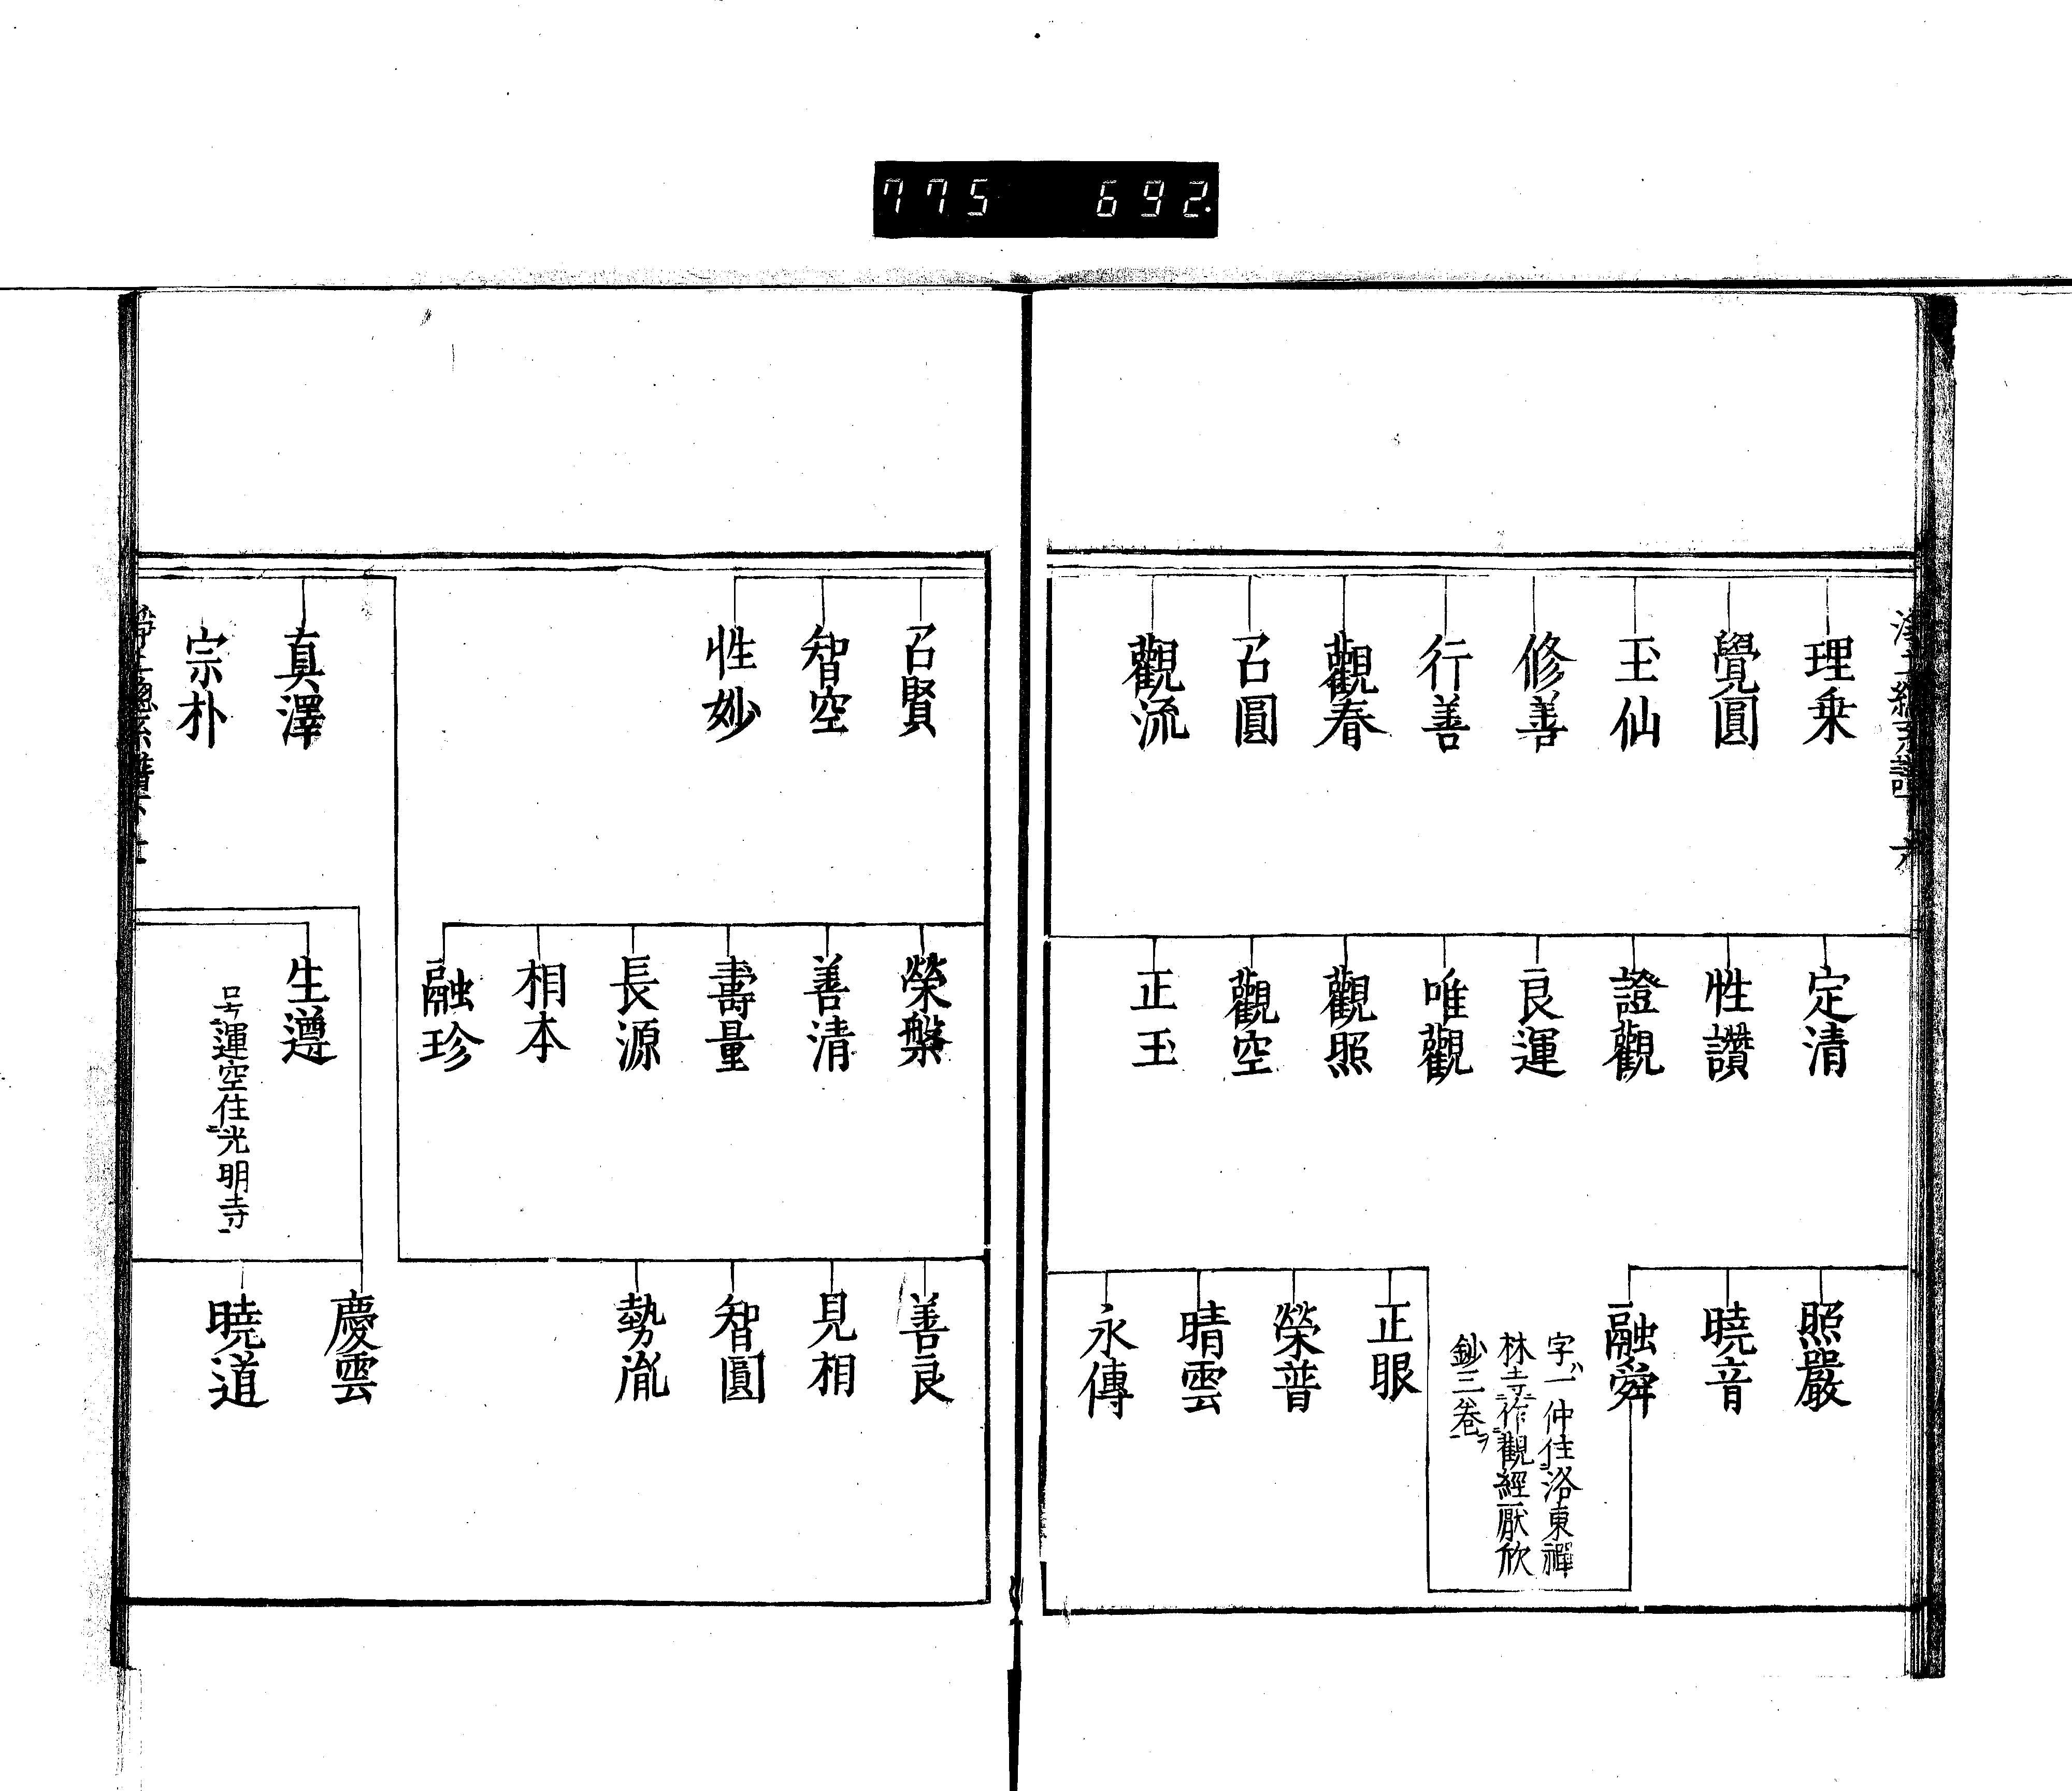 775 692
理乗
覺圓
玉仙
修善
行善
觀春
召圓
觀流
定清
性讚
證觀
良運
唯觀
觀照
觀空
正玉
照嚴
曉音
融舜
字一仲住洛東禪
林寺作觀經厭欣
鈔三卷ヲ
正眼
榮普
晴雲
永傳
召賢
智空
性妙
真澤
宗朴
榮槃
善清
壽量
長源
相本
融珍
生遵
号運空住光明寺
善良
見相
智圓
勢胤
慶雲
曉道